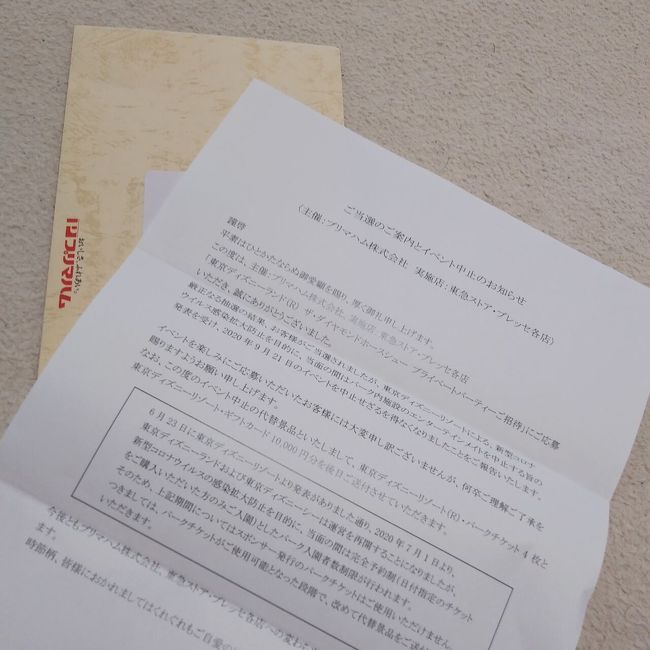 おいしさ、ふれあい。
プリマハム
ご当選のご案内とイベント中止のお知らせ
(主催:プリマハム株式会社 実施店:東急ストア・プレッセ各店)
謹啓
平素はひとかたならぬ御愛顧を賜り、厚く御礼申し上げます。
この度は、主催:プリマハム株式会社、実施店:東急ストア・プレッセ各店
「東京ディズニーランド(R) ザ・ダイヤモンドホースシュー プライベートパーティーご招待」にご応募
いただき、誠にありがとうございました。
厳正なる抽選の結果、お客様がご当選されましたが、東京ディズニーリゾートによる、新型コロナ
ウイルス感染拡大防止を目的に、当面の間はパーク内施設のエンターテイメントを中止する旨の
発表を受け、2020年9月21日のイベントを中止せざるを得なくなりましたことをご報告いたします。
イベントを楽しみにご応募いただいたお客様には大変申し訳ございませんが、何卒ご理解ご了承を
賜りますようお願い申し上げます。
なお、この度のイベント中止の代替景品といたしまして、東京ディズニーリゾート(R)・パークチケット4枚と
東京ディズニーリゾート・ギフトカード10,000円分を後日ご送付させていただきます。
6月23日に東京ディズニーリゾートより発表がありました通り、2020年7月1日より、
東京ディズニーランドおよび東京ディズニーシーは運営を再開することになりましたが、
新型コロナウイルスの感染拡大防止を目的に、当面の間は完全予約制(日付指定のチケット
をご購入いただいた方のみご入園)としたパーク入園者数制限が行われます。
そのため、上記期間についてはスポンサー発行のパークチケットはご使用いただけません。
つきましては、パークチケットがご使用可能となった段階で、改めて代替景品をご送付
いただきます。
今後ともプリマハム株式会社、東急ストア・プレッセ各店への変わら
ます。
時節柄、皆様におかれましてはくれぐれもご自愛の